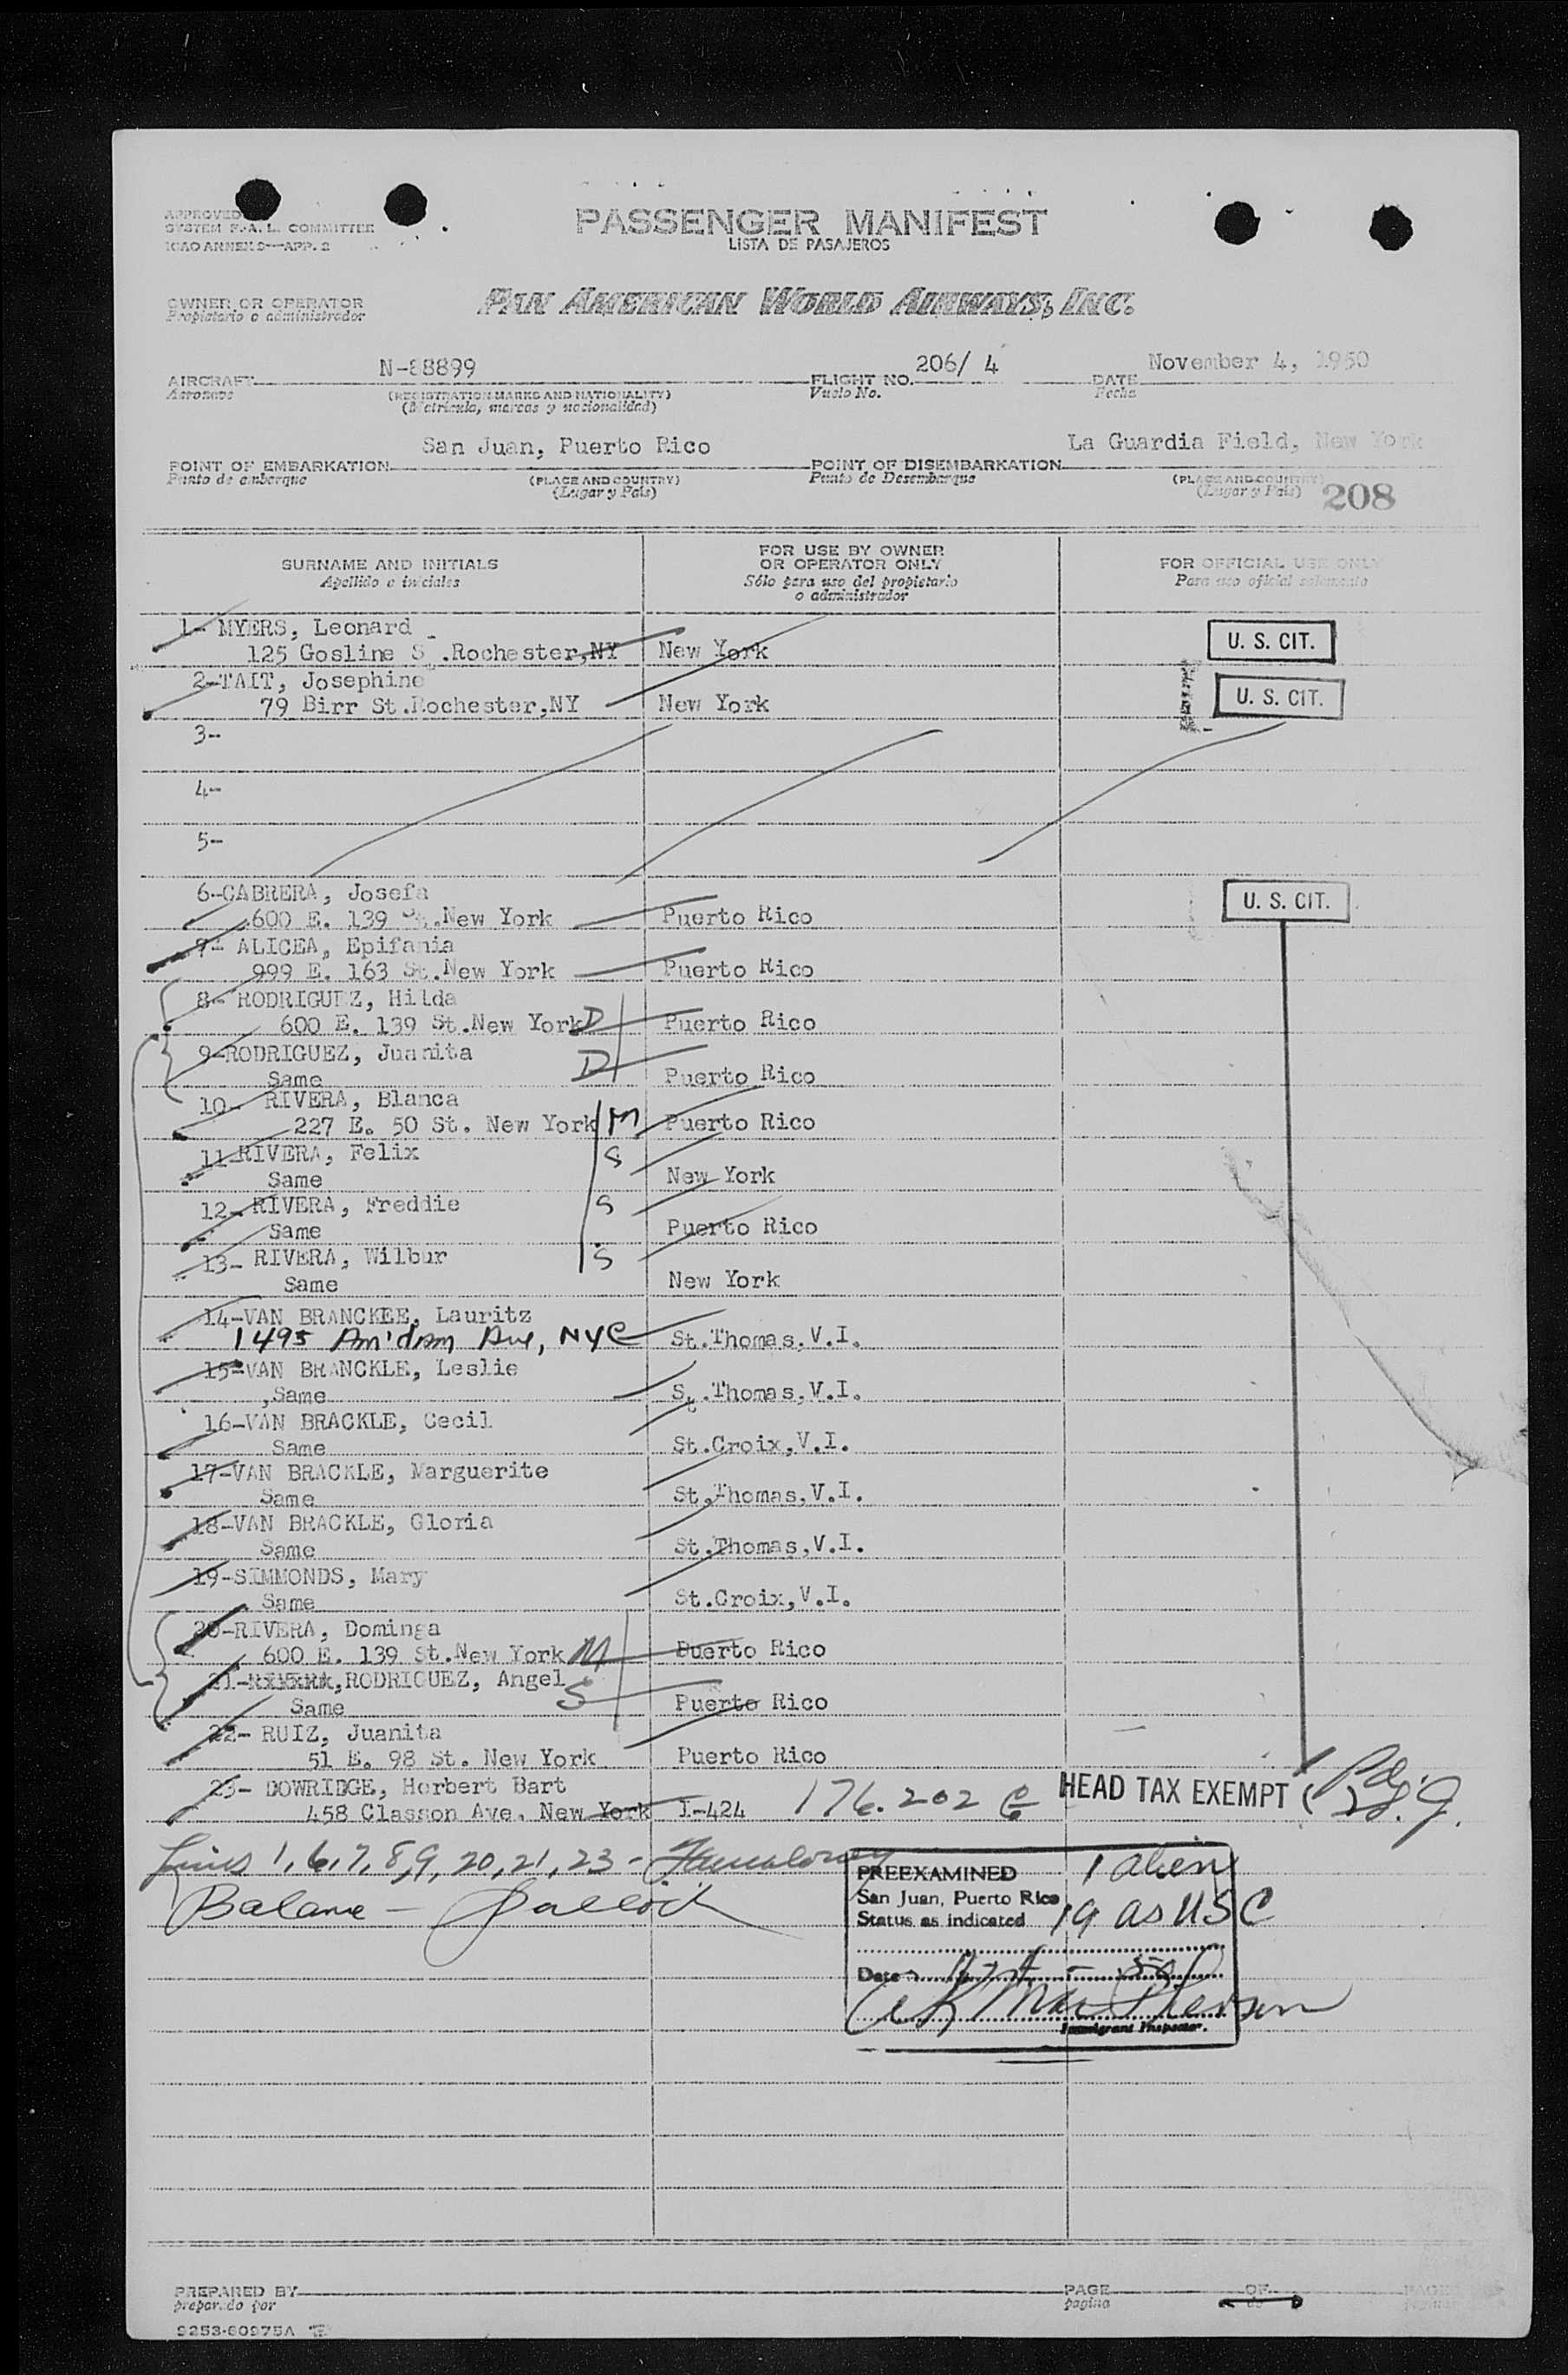 APPROVED
SYSTEM F.A.L. COMMITTEE
ICAO ANNEX 9—APP. 2
PASSENGER MANIFEST
LISTA DE PASAJEROS
OWNER OR OPERATOR
Propietario o administrador
PAN AMERICAN WORLD AIRWAYS, INC.
AIRCRAFT N-88899 FLIGHT NO. 206/ 4 DATE November 4, 1950
Aeronave (REGISTRATION MARKS AND NATIONALITY) Vuelo No. Fecha
(Matrícula, marcas y nacionalidad)
POINT OF EMBARKATION San Juan, Puerto Rico POINT OF DISEMBARKATION La Guardia Field, New York
Punto de embarque (PLACE AND COUNTRY) Punto de Desembarque (PLACE AND COUNTRY)
(Lugar y País) (Lugar y País) 208
SURNAME AND INITIALS FOR USE BY OWNER OR OPERATOR ONLY FOR OFFICIAL USE ONLY
Apellido e iniciales Sólo para uso del propietario o administrador Para uso oficial solamente
1- MYERS, Leonard U. S. CIT.
125 Gosline S .Rochester,NY New York
2-TAIT, Josephine U. S. CIT.
79 Birr St.Rochester,NY New York
3-
4-
5-
6-CABRERA, Josefa U. S. CIT.
600 E. 139 St.New York Puerto Rico
7- ALICEA, Epifania
999 E. 163 St.New York Puerto Rico
8- RODRIGUEZ, Hilda
600 E. 139 St.New York D Puerto Rico
9-RODRIGUEZ, Juanita
Same D Puerto Rico
10- RIVERA, Blanca
227 E. 50 St. New York M Puerto Rico
11-RIVERA, Felix S
Same New York
12-RIVERA, Freddie S
Same Puerto Rico
13- RIVERA, Wilbur S
Same New York
14-VAN BRANCKEE, Lauritz
1495 Am'dam Ave, NYC St.Thomas.V.I.
15-VAN BRANCKLE, Leslie
Same St.Thomas,V.I.
16-VAN BRACKLE, Cecil
Same St.Croix,V.I.
17-VAN BRACKLE, Marguerite
Same St.Thomas,V.I.
18-VAN BRACKLE, Gloria
Same St.Thomas,V.I.
19-SIMMONDS, Mary
Same St.Croix,V.I.
20-RIVERA, Dominga
600 E. 139 St.New York M Puerto Rico
21-RIVERA,RODRIGUEZ, Angel S
Same Puerto Rico
22- RUIZ, Juanita
51 E. 98 St. New York Puerto Rico
23- DOWRIDGE, Herbert Bart
458 Classon Ave. New York I-424 176.202 HEAD TAX EXEMPT
Lines 1,6,7,8,9, 20,21,23 -
Balance -
PREEXAMINED 1 alien
San Juan, Puerto Rico
Status as indicated 19 as USC
Date
Immigrant Inspector.
PREPARED BY PAGE OF PAGES
preparado por página de
9253-60975A